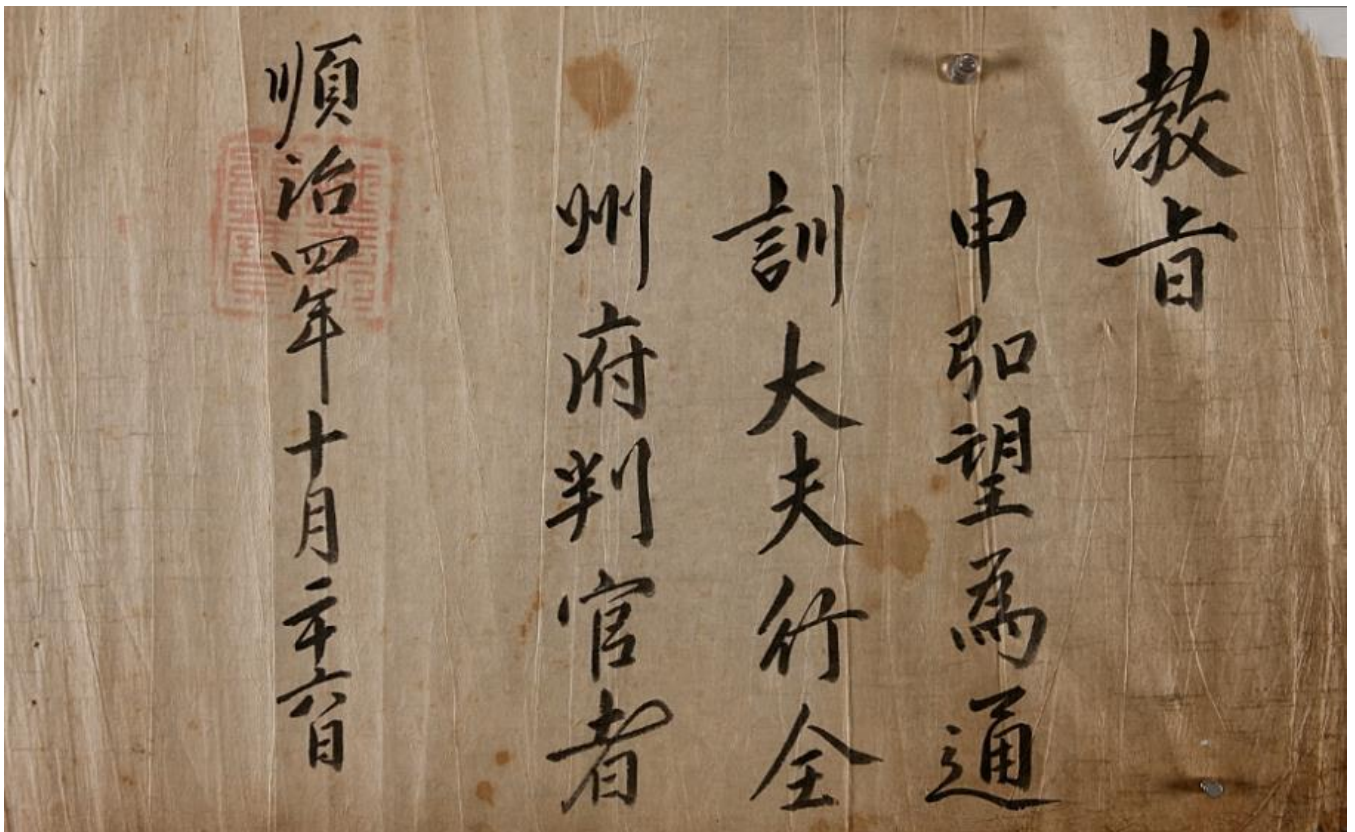 教旨
申弘望爲通
訓大夫行全
州府判官者
順治四年十月二十六日